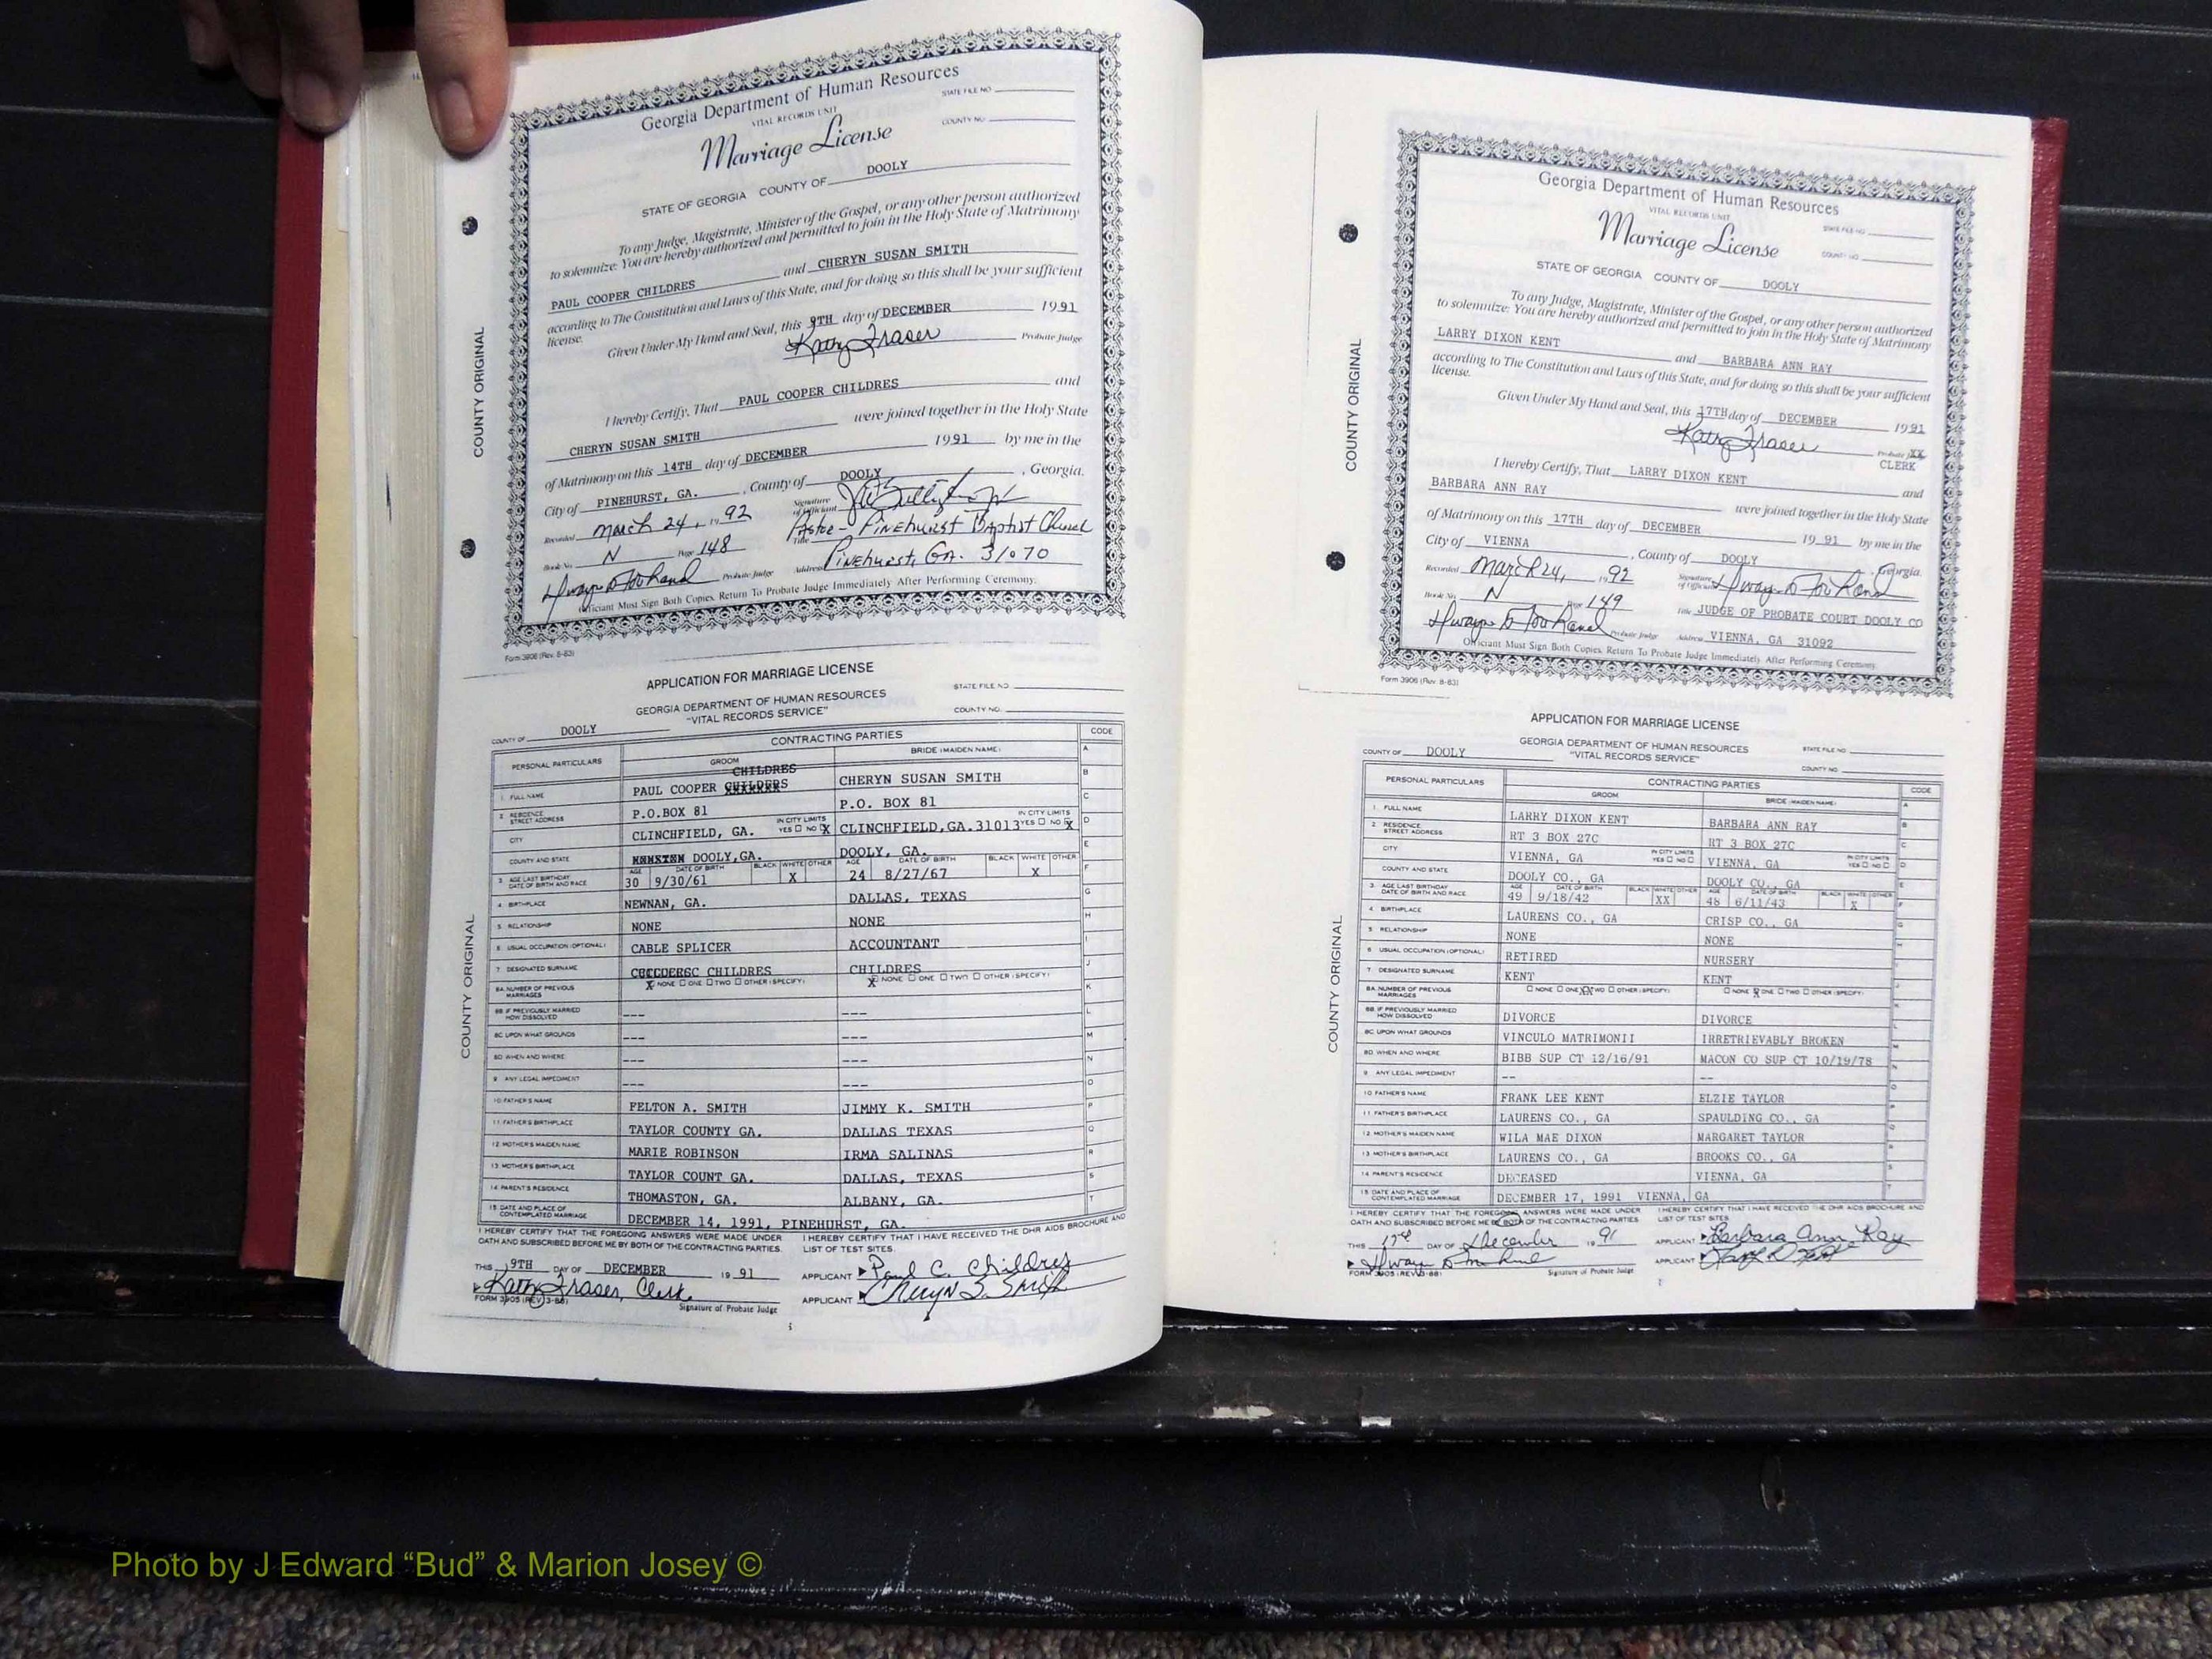 Georgia Department of Human Resources
VITAL RECORDS UNIT
Marriage License
STATE FILE NO.
COUNTY NO.
STATE OF GEORGIA COUNTY OF DOOLY
To any Judge, Magistrate, Minister of the Gospel, or any other person authorized
to solemnize: You are hereby authorized and permitted to join in the Holy State of Matrimony
PAUL COOPER CHILDRES and CHERYN SUSAN SMITH
according to The Constitution and Laws of this State, and for doing so this shall be your sufficient
license.
Given Under My Hand and Seal, this 9TH day of DECEMBER 1991
Kathy Fraser Probate Judge
I hereby Certify, That PAUL COOPER CHILDRES and
CHERYN SUSAN SMITH were joined together in the Holy State
of Matrimony on this 14TH day of DECEMBER 1991 by me in the
City of PINEHURST, GA. , County of DOOLY , Georgia.
Recorded March 24, 1992 Signature of Officiant
Book No. N Page 148 Title Pastor - Pinehurst Baptist Church
Probate Judge Address Pinehurst, Ga. 31070
Officiant Must Sign Both Copies. Return To Probate Judge Immediately After Performing Ceremony.
Form 3906 (Rev. 8-83)
COUNTY ORIGINAL
APPLICATION FOR MARRIAGE LICENSE
GEORGIA DEPARTMENT OF HUMAN RESOURCES
"VITAL RECORDS SERVICE"
STATE FILE NO.
COUNTY NO.
COUNTY OF DOOLY
PERSONAL PARTICULARS CONTRACTING PARTIES CODE
GROOM BRIDE (MAIDEN NAME)
CHILDRES
1. FULL NAME PAUL COOPER CHILDERS CHERYN SUSAN SMITH
2. RESIDENCE STREET ADDRESS P.O.BOX 81 P.O. BOX 81
CITY CLINCHFIELD, GA. IN CITY LIMITS YES NO X CLINCHFIELD,GA.31013 IN CITY LIMITS YES NO X
COUNTY AND STATE DOOLY,GA. DOOLY, GA.
3. AGE LAST BIRTHDAY DATE OF BIRTH AND RACE AGE 30 DATE OF BIRTH 9/30/61 BLACK WHITE X OTHER AGE 24 DATE OF BIRTH 8/27/67 BLACK WHITE X OTHER
4. BIRTHPLACE NEWNAN, GA. DALLAS, TEXAS
5. RELATIONSHIP NONE NONE
6. USUAL OCCUPATION (OPTIONAL) CABLE SPLICER ACCOUNTANT
7. DESIGNATED SURNAME CHILDRES CHILDRES
8A. NUMBER OF PREVIOUS MARRIAGES X NONE ONE TWO OTHER (SPECIFY) X NONE ONE TWO OTHER (SPECIFY)
8B. IF PREVIOUSLY MARRIED HOW DISSOLVED --- ---
8C. UPON WHAT GROUNDS --- ---
8D. WHEN AND WHERE --- ---
9. ANY LEGAL IMPEDIMENT --- ---
10. FATHER'S NAME FELTON A. SMITH JIMMY K. SMITH
11. FATHER'S BIRTHPLACE TAYLOR COUNTY GA. DALLAS TEXAS
12. MOTHER'S MAIDEN NAME MARIE ROBINSON IRMA SALINAS
13. MOTHER'S BIRTHPLACE TAYLOR COUNT GA. DALLAS, TEXAS
14. PARENT'S RESIDENCE THOMASTON, GA. ALBANY, GA.
15. DATE AND PLACE OF CONTEMPLATED MARRIAGE DECEMBER 14, 1991, PINEHURST, GA.
I HEREBY CERTIFY THAT THE FOREGOING ANSWERS WERE MADE UNDER
OATH AND SUBSCRIBED BEFORE ME BY BOTH OF THE CONTRACTING PARTIES.
I HEREBY CERTIFY THAT I HAVE RECEIVED THE DHR AIDS BROCHURE AND
LIST OF TEST SITES.
THIS 9TH DAY OF DECEMBER 1991 APPLICANT Paul C. Childres
Kathy Fraser, Clerk APPLICANT Cheryn S. Smith
FORM 3905 (REV. 3-88) Signature of Probate Judge
COUNTY ORIGINAL
Georgia Department of Human Resources
VITAL RECORDS UNIT
Marriage License
STATE FILE NO.
COUNTY NO.
STATE OF GEORGIA COUNTY OF DOOLY
To any Judge, Magistrate, Minister of the Gospel, or any other person authorized
to solemnize: You are hereby authorized and permitted to join in the Holy State of Matrimony
LARRY DIXON KENT and BARBARA ANN RAY
according to The Constitution and Laws of this State, and for doing so this shall be your sufficient
license.
Given Under My Hand and Seal, this 17TH day of DECEMBER 1991
Kathy Fraser Probate
CLERK
I hereby Certify, That LARRY DIXON KENT and
BARBARA ANN RAY were joined together in the Holy State
of Matrimony on this 17TH day of DECEMBER 1991 by me in the
City of VIENNA , County of DOOLY , Georgia.
Recorded March 24, 1992 Signature of Officiant
Book No. N Page 149 Title JUDGE OF PROBATE COURT DOOLY CO
Probate Judge Address VIENNA, GA 31092
Officiant Must Sign Both Copies. Return To Probate Judge Immediately After Performing Ceremony.
Form 3906 (Rev. 8-83)
COUNTY ORIGINAL
APPLICATION FOR MARRIAGE LICENSE
GEORGIA DEPARTMENT OF HUMAN RESOURCES
"VITAL RECORDS SERVICE"
STATE FILE NO.
COUNTY NO.
COUNTY OF DOOLY
PERSONAL PARTICULARS CONTRACTING PARTIES CODE
GROOM BRIDE (MAIDEN NAME)
1. FULL NAME LARRY DIXON KENT BARBARA ANN RAY
2. RESIDENCE STREET ADDRESS RT 3 BOX 27C RT 3 BOX 27C
CITY VIENNA, GA IN CITY LIMITS YES NO VIENNA, GA IN CITY LIMITS YES NO
COUNTY AND STATE DOOLY CO., GA DOOLY CO., GA
3. AGE LAST BIRTHDAY DATE OF BIRTH AND RACE AGE 49 DATE OF BIRTH 9/18/42 BLACK WHITE XX OTHER AGE 48 DATE OF BIRTH 6/11/43 BLACK WHITE X OTHER
4. BIRTHPLACE LAURENS CO., GA CRISP CO., GA
5. RELATIONSHIP NONE NONE
6. USUAL OCCUPATION (OPTIONAL) RETIRED NURSERY
7. DESIGNATED SURNAME KENT KENT
8A. NUMBER OF PREVIOUS MARRIAGES NONE ONE XX TWO OTHER (SPECIFY) NONE X ONE TWO OTHER (SPECIFY)
8B. IF PREVIOUSLY MARRIED HOW DISSOLVED DIVORCE DIVORCE
8C. UPON WHAT GROUNDS VINCULO MATRIMONII IRRETRIEVABLY BROKEN
8D. WHEN AND WHERE BIBB SUP CT 12/16/91 MACON CO SUP CT 10/19/78
9. ANY LEGAL IMPEDIMENT -- --
10. FATHER'S NAME FRANK LEE KENT ELZIE TAYLOR
11. FATHER'S BIRTHPLACE LAURENS CO., GA SPAULDING CO., GA
12. MOTHER'S MAIDEN NAME WILA MAE DIXON MARGARET TAYLOR
13. MOTHER'S BIRTHPLACE LAURENS CO., GA BROOKS CO., GA
14. PARENT'S RESIDENCE DECEASED VIENNA, GA
15. DATE AND PLACE OF CONTEMPLATED MARRIAGE DECEMBER 17, 1991 VIENNA, GA
I HEREBY CERTIFY THAT THE FOREGOING ANSWERS WERE MADE UNDER
OATH AND SUBSCRIBED BEFORE ME BY BOTH OF THE CONTRACTING PARTIES
I HEREBY CERTIFY THAT I HAVE RECEIVED THE DHR AIDS BROCHURE AND
LIST OF TEST SITES
THIS 17th DAY OF December 1991 APPLICANT Barbara Ann Ray
APPLICANT
FORM 3905 (REV. 3-88) Signature of Probate Judge
COUNTY ORIGINAL
Photo by J Edward “Bud” & Marion Josey ©